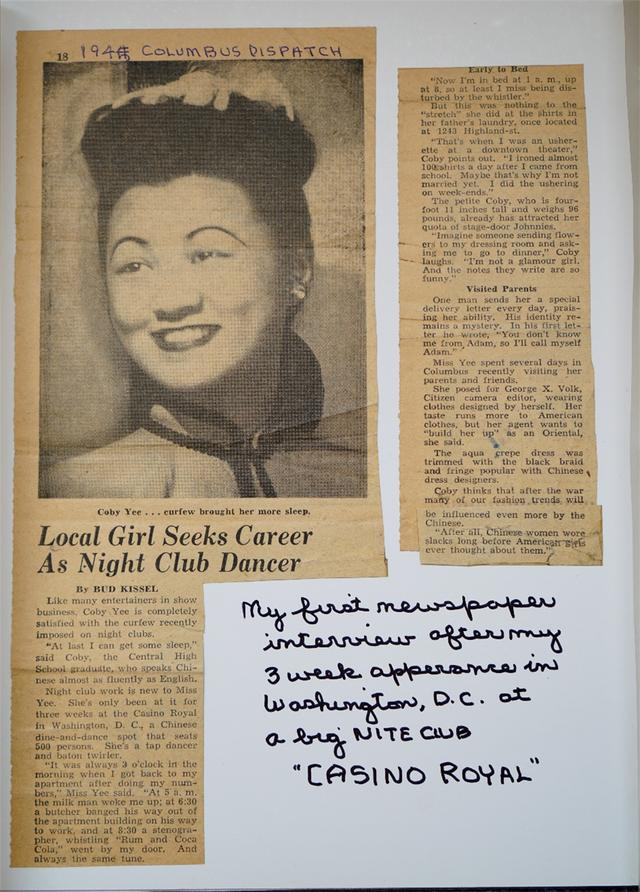 18 1944 COLUMBUS DISPATCH
Coby Yee . . . curfew brought her more sleep.
Local Girl Seeks Career
As Night Club Dancer
By BUD KISSEL
Like many entertainers in show
business, Coby Yee is completely
satisfied with the curfew recently
imposed on night clubs.
"At last I can get some sleep,"
said Coby, the Central High
School graduate, who speaks Chi-
nese almost as fluently as English.
Night club work is new to Miss
Yee. She's only been at it for
three weeks at the Casino Royal
in Washington, D. C., a Chinese
dine-and-dance spot that seats
500 persons. She's a tap dancer
and baton twirler.
"It was always 3 o'clock in the
morning when I got back to my
apartment after doing my num-
bers," Miss Yee said. "At 5 a. m.
the milk man woke me up; at 6:30
a butcher banged his way out of
the apartment building on his way
to work, and at 8:30 a stenogra-
pher, whistling "Rum and Coca
Cola," went by my door. And
always the same tune.
Early to Bed
"Now I'm in bed at 1 a. m., up
at 8, so at least I miss being dis-
turbed by the whistler."
But this was nothing to the
"stretch" she did at the shirts in
her father's laundry, once located
at 1243 Highland-st.
"That's when I was an usher-
ette at a downtown theater,"
Coby points out. "I ironed almost
100 shirts a day after I came from
school. Maybe that's why I'm not
married yet. I did the ushering
on week-ends."
The petite Coby, who is four-
foot 11 inches tall and weighs 96
pounds, already has attracted her
quota of stage-door Johnnies.
"Imagine someone sending flow-
ers to my dressing room and ask-
ing me to go to dinner," Coby
laughs. "I'm not a glamour girl.
And the notes they write are so
funny."
Visited Parents
One man sends her a special
delivery letter every day, prais-
ing her ability. His identity re-
mains a mystery. In his first let-
ter he wrote, "You don't know
me from Adam, so I'll call myself
Adam."
Miss Yee spent several days in
Columbus recently visiting her
parents and friends.
She posed for George X. Volk,
Citizen camera editor, wearing
clothes designed by herself. Her
taste runs more to American
clothes, but her agent wants to
"build her up" as an Oriental,
she said.
The aqua crepe dress was
trimmed with the black braid
and fringe popular with Chinese
dress designers.
Coby thinks that after the war
many of our fashion trends will
be influenced even more by the
Chinese.
"After all, Chinese women wore
slacks long before American girls
ever thought about them."
My first newspaper
interview after my
3 week apperance in
Washington, D.C. at
a big NITE CLUB
"CASINO ROYAL"